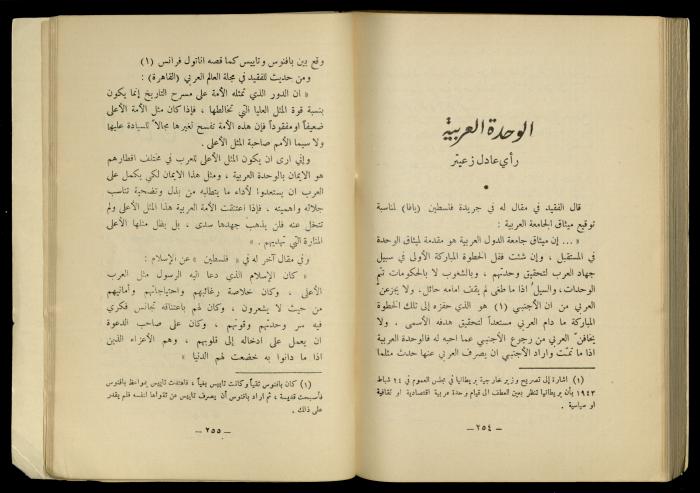 الوحدة العربية
رأي عادل زعيتر
قال الفقيد في مقال له في جريدة فلسطين (يافا) لمناسبة
توقيع ميثاق الجامعة العربية :
« ... إن ميثاق جامعة الدول العربية هو مقدمة لميثاق الوحدة
في المستقبل ، وإن شئت فقل الخطوة المباركة الأولى في سبيل
جهاد العرب لتحقيق وحدتهم ، وبالشعوب لا بالحكومات تتم
الوحدات، والسيل اذا ما طغى لم يقف امامه حائل. ولا يجزعن
العربي من ان الأجنبي (١) هو الذي حفزه إلى تلك الخطوة
المباركة ما دام العربي مستعداً لتحقيق هدفه الأسمى . ولا
يخافن العربي من رجوع الأجنبي عما احبه له فالوحدة العربية
اذا ما تمت واراد الأجنبي ان يصرف العربي عنها حدث مثلما
(١) اشارة إلى تصريح وزير خارجية بريطانيا في مجلس العموم في ٢٤ شباط
١٩٤٣ بأن بريطانيا تنظر بعين العطف الى قيام وحدة عربية اقتصادية او ثقافية
او سياسية .
– ٢٥٤ –
وقع بين بافنوس وتاييس كما قصه اناتول فرانس (١)
ومن حديث للفقيد في مجلة العالم العربي (القاهرة) :
« ان الدور الذي تمثله الأمة على مسرح التاريخ إنما يكون
بنسبة قوة المثل العليا التي تخالطها ، فإذا كان مثل الأمة الأعلى
ضعيفاً او مفقوداً فإن هذه الأمة تفسح لغيرها مجالاً للسيادة عليها
ولا سيما الأمم صاحبة المثل الأعلى .
وإني ارى ان يكون المثل الأعلى للعرب في مختلف اقطارهم
هو الإيمان بالوحدة العربية ، ومثل هذا الايمان لكي يكمل على
العرب ان يستعدوا لأداء ما يتطلبه من بذل وتضحية تناسب
جلاله واهميته . فإذا اعتنقت الأمة العربية هذا المثل الأعلى ولم
تتخل عنه فلن يذهب جهدها سدى ، بل يظل مثلها الأعلى
المنارة التي تهديهم . »
وفي مقال آخر له في « فلسطين » عن الإسلام :
« كان الإسلام الذي دعا اليه الرسول مثل العرب
الأعلى ، وكان خلاصة رغائبهم واحتياجاتهم وأمانيهم
من حيث لا يشعرون ، وكان لهم باعتناقه تجانس فكري
فيه سر وحدتهم وقوتهم ، وكان على صاحب الدعوة
ان يعمل على ادخاله إلى قلوبهم ، وهم الأعزاء الذين
اذا ما دانوا به خضعت لهم الدنيا »
(١) كان بافنوس تقياً وكانت تاييس بغياً ، فاهتدت تاييس بمواعظ بافنوس
فأصبحت قديسة ، ثم اراد بافنوس أن يصرف تاييس عن تقواها لنفسه فلم يقدر
على ذلك .
– ٢٥٥ –